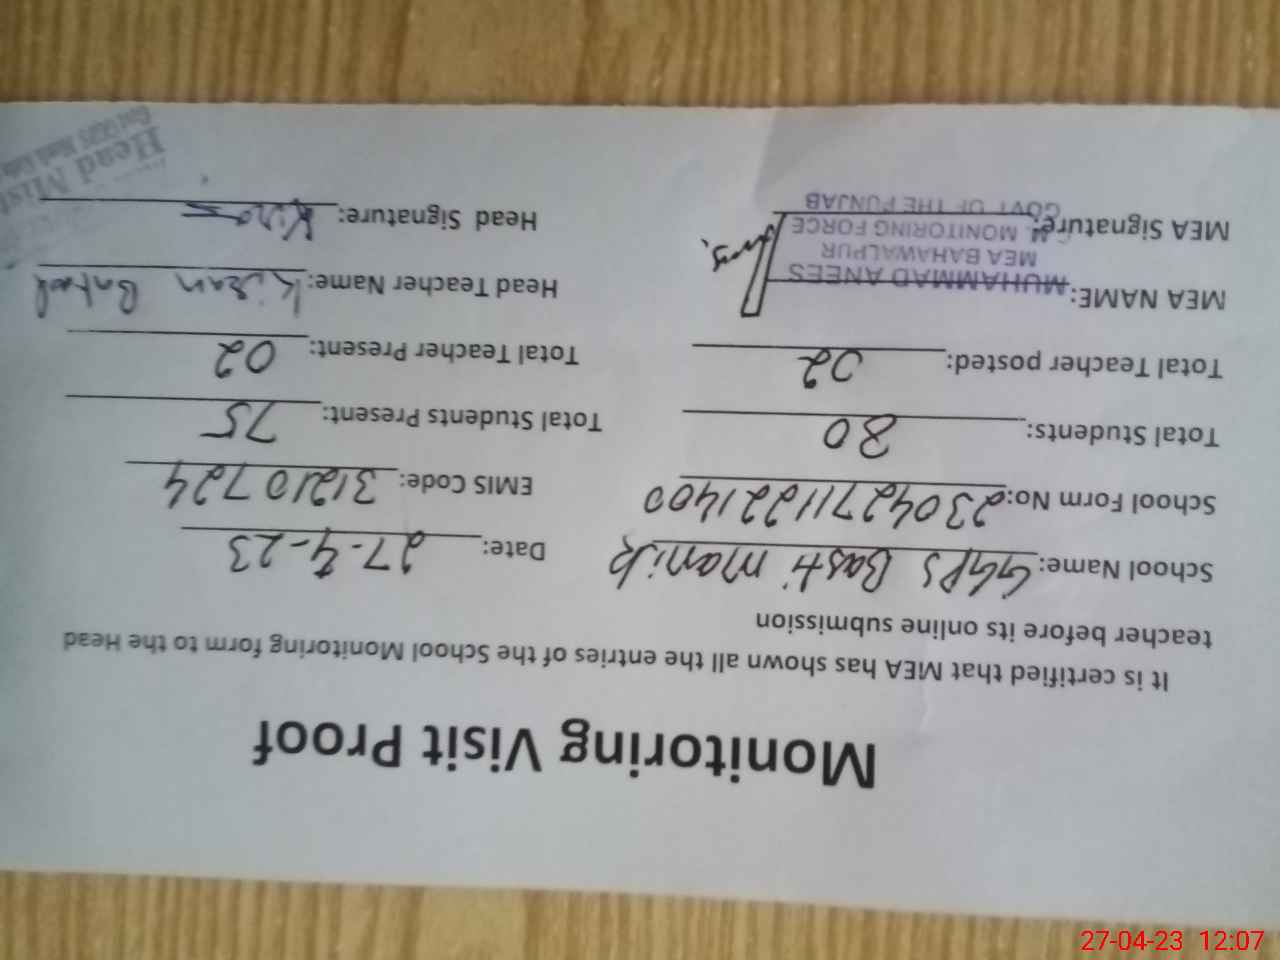 Monitoring Visit Proof
It is certified that MEA has shown all the entries of the School Monitoring form to the Head
teacher before its online submission
School Name: GGPS Basti Manik Date: 27-4-23
School Form No: 230427112221400 EMIS Code: 31210724
Total Students: 80 Total Students Present: 75
Total Teacher posted: 02 Total Teacher Present: 02
MEA NAME: MUHAMMAD ANEES Head Teacher Name: Kiran Batool
MEA BAHAWALPUR
MEA Signature: MONITORING FORCE Head Signature: Kiran
GOVT OF THE PUNJAB
Head Mist
27-04-23 12:07